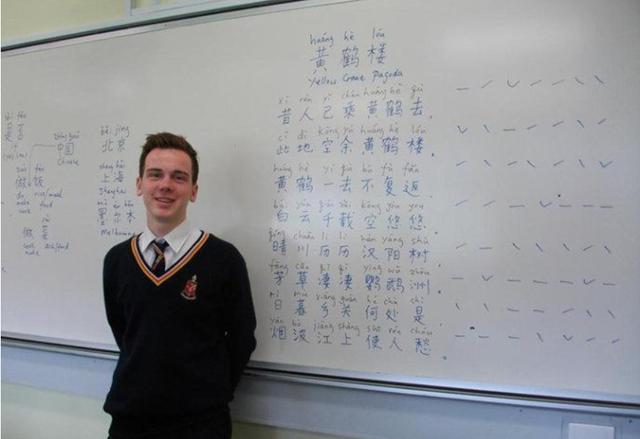 huáng hè lóu
黄鹤楼
Yellow Crane Pagoda
xī rén yǐ chéng huáng hè qù
昔人已乘黄鹤去,
cǐ dì kōng yú huáng hè lóu
此地空余黄鹤楼。
huáng hè yī qù bù fù fǎn
黄鹤一去不复返
bái yún qiān zǎi kōng yōu yōu
白云千载空悠悠
qíng chuān lì lì hàn yáng shù
晴川历历汉阳树
fāng cǎo qī qī yīng wǔ zhōu
草萋萋鹦鹉洲
rì mù xiāng guān hé chù shì
日暮乡关何处是
yān bō jiāng shàng shǐ rén chóu
烟波江上使人愁。
zhōng guó
中国
Chinese
做饭
做菜
běi jīng
北京
shàng hǎi
上海
Shanghai
墨尔本
Melbourne